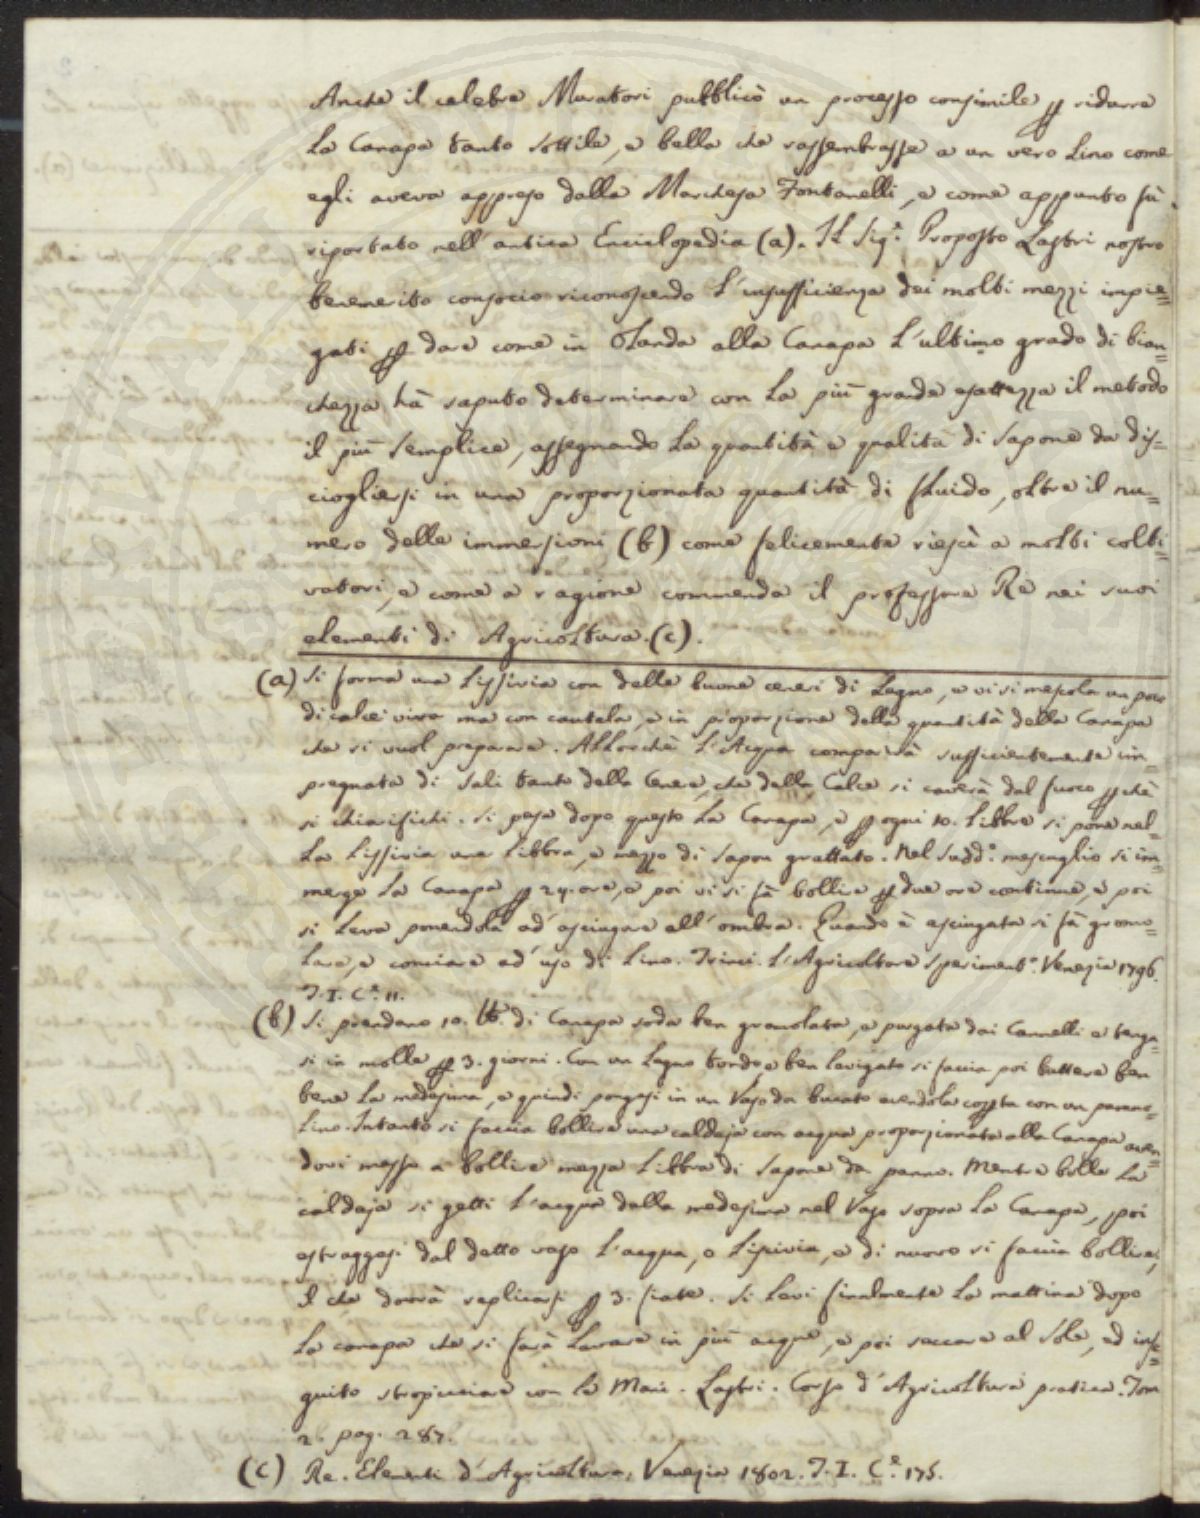 Anche il celebre Muratori pubblicò un processo consimile p ridurre
la Canapa tanto sottile, e bella che rassembrasse a un vero Lino come
egli aveva appreso dalla Marchesa Fontanelli, e come appunto fù
riportato nell'antica Enciclopedia (a). Il Sig.e Proposto Lastri nostro
benemerito consocio riconoscendo l'insufficienza dei molti mezzi impie=
gati p dare come in Olanda alla Canapa l'ultimo grado di bian=
chezza hà saputo determinare con la più grande esattezza il metodo
il più semplice, assegnando la quantità e qualità di sapone da dis=
ciogliersi in una proporzionata quantità di fluido, oltre il nu=
mero delle immersioni (b) come felicemente riescì a molti colti=
vatori, e come a ragione commenda il professore Re nei suoi
elementi di Agricoltura. (c).
(a) Si forma una lissivia con delle buone ceneri di Legno, e vi si mescola un poco
di calce viva ma con cautela, e in proporzione della quantità della Canapa
che si vuol preparare. Allorchè l'Acqua comparirà sufficientemente im=
pregnata di Sali tanto della Cenere, che della Calce si caverà dal fuoco p chè
si chiarifichi. Si pesa dopo questo la Canapa, e p ogni 10. Libbre si pone nel=
la Lissivia una Libbra, e mezzo di Sapon grattato. Nel Sudd.o mescuglio si im=
merge la Canapa p 24. ore, e poi vi si fà bollire p due ore continue, e poi
si leva ponendola ad'asciugare all'ombra. Quando è asciugata si fà gromo=
lare, e conciare ad'uso di Lino. Trinci. L'Agricoltore Speriment.e Venezia 1796.
T. I. C.e 11.
(b) Si prendano 10. lb. di Canapa soda ben gramolata, e purgata dai Cannelli e tenga=
si in molle p 3. giorni. Con un Legno tondo, e ben levigato si faccia poi battere ben
bene la medesima, e quindi pongasi in un Vaso da bucato avendola copta con un panno=
lino. Intanto si faccia bollire una caldaja con acqua proporzionata alla Canapa aven=
dovi messa a bollire mezza Libbra di Sapone da panno. Mentre bolle la
caldaja si getti l'acqua dalla medesima nel Vaso sopra la Canapa, poi
estraggasi dal detto vaso l'acqua, o lisivia, e di nuovo si faccia bollire,
il che dovrà replicarsi p 3. fiate. Si levi finalmente la mattina dopo
la canapa che si farà lavare in più acque, e poi seccare al Sole, ed inse=
guito stropicciare con le Mani. Lastri. Corso d'Agricoltura pratica. Tom
2. pag. 287.
(c) Re. Elementi d'Agricoltura, Venezia 1802. T. I. C.e 175.